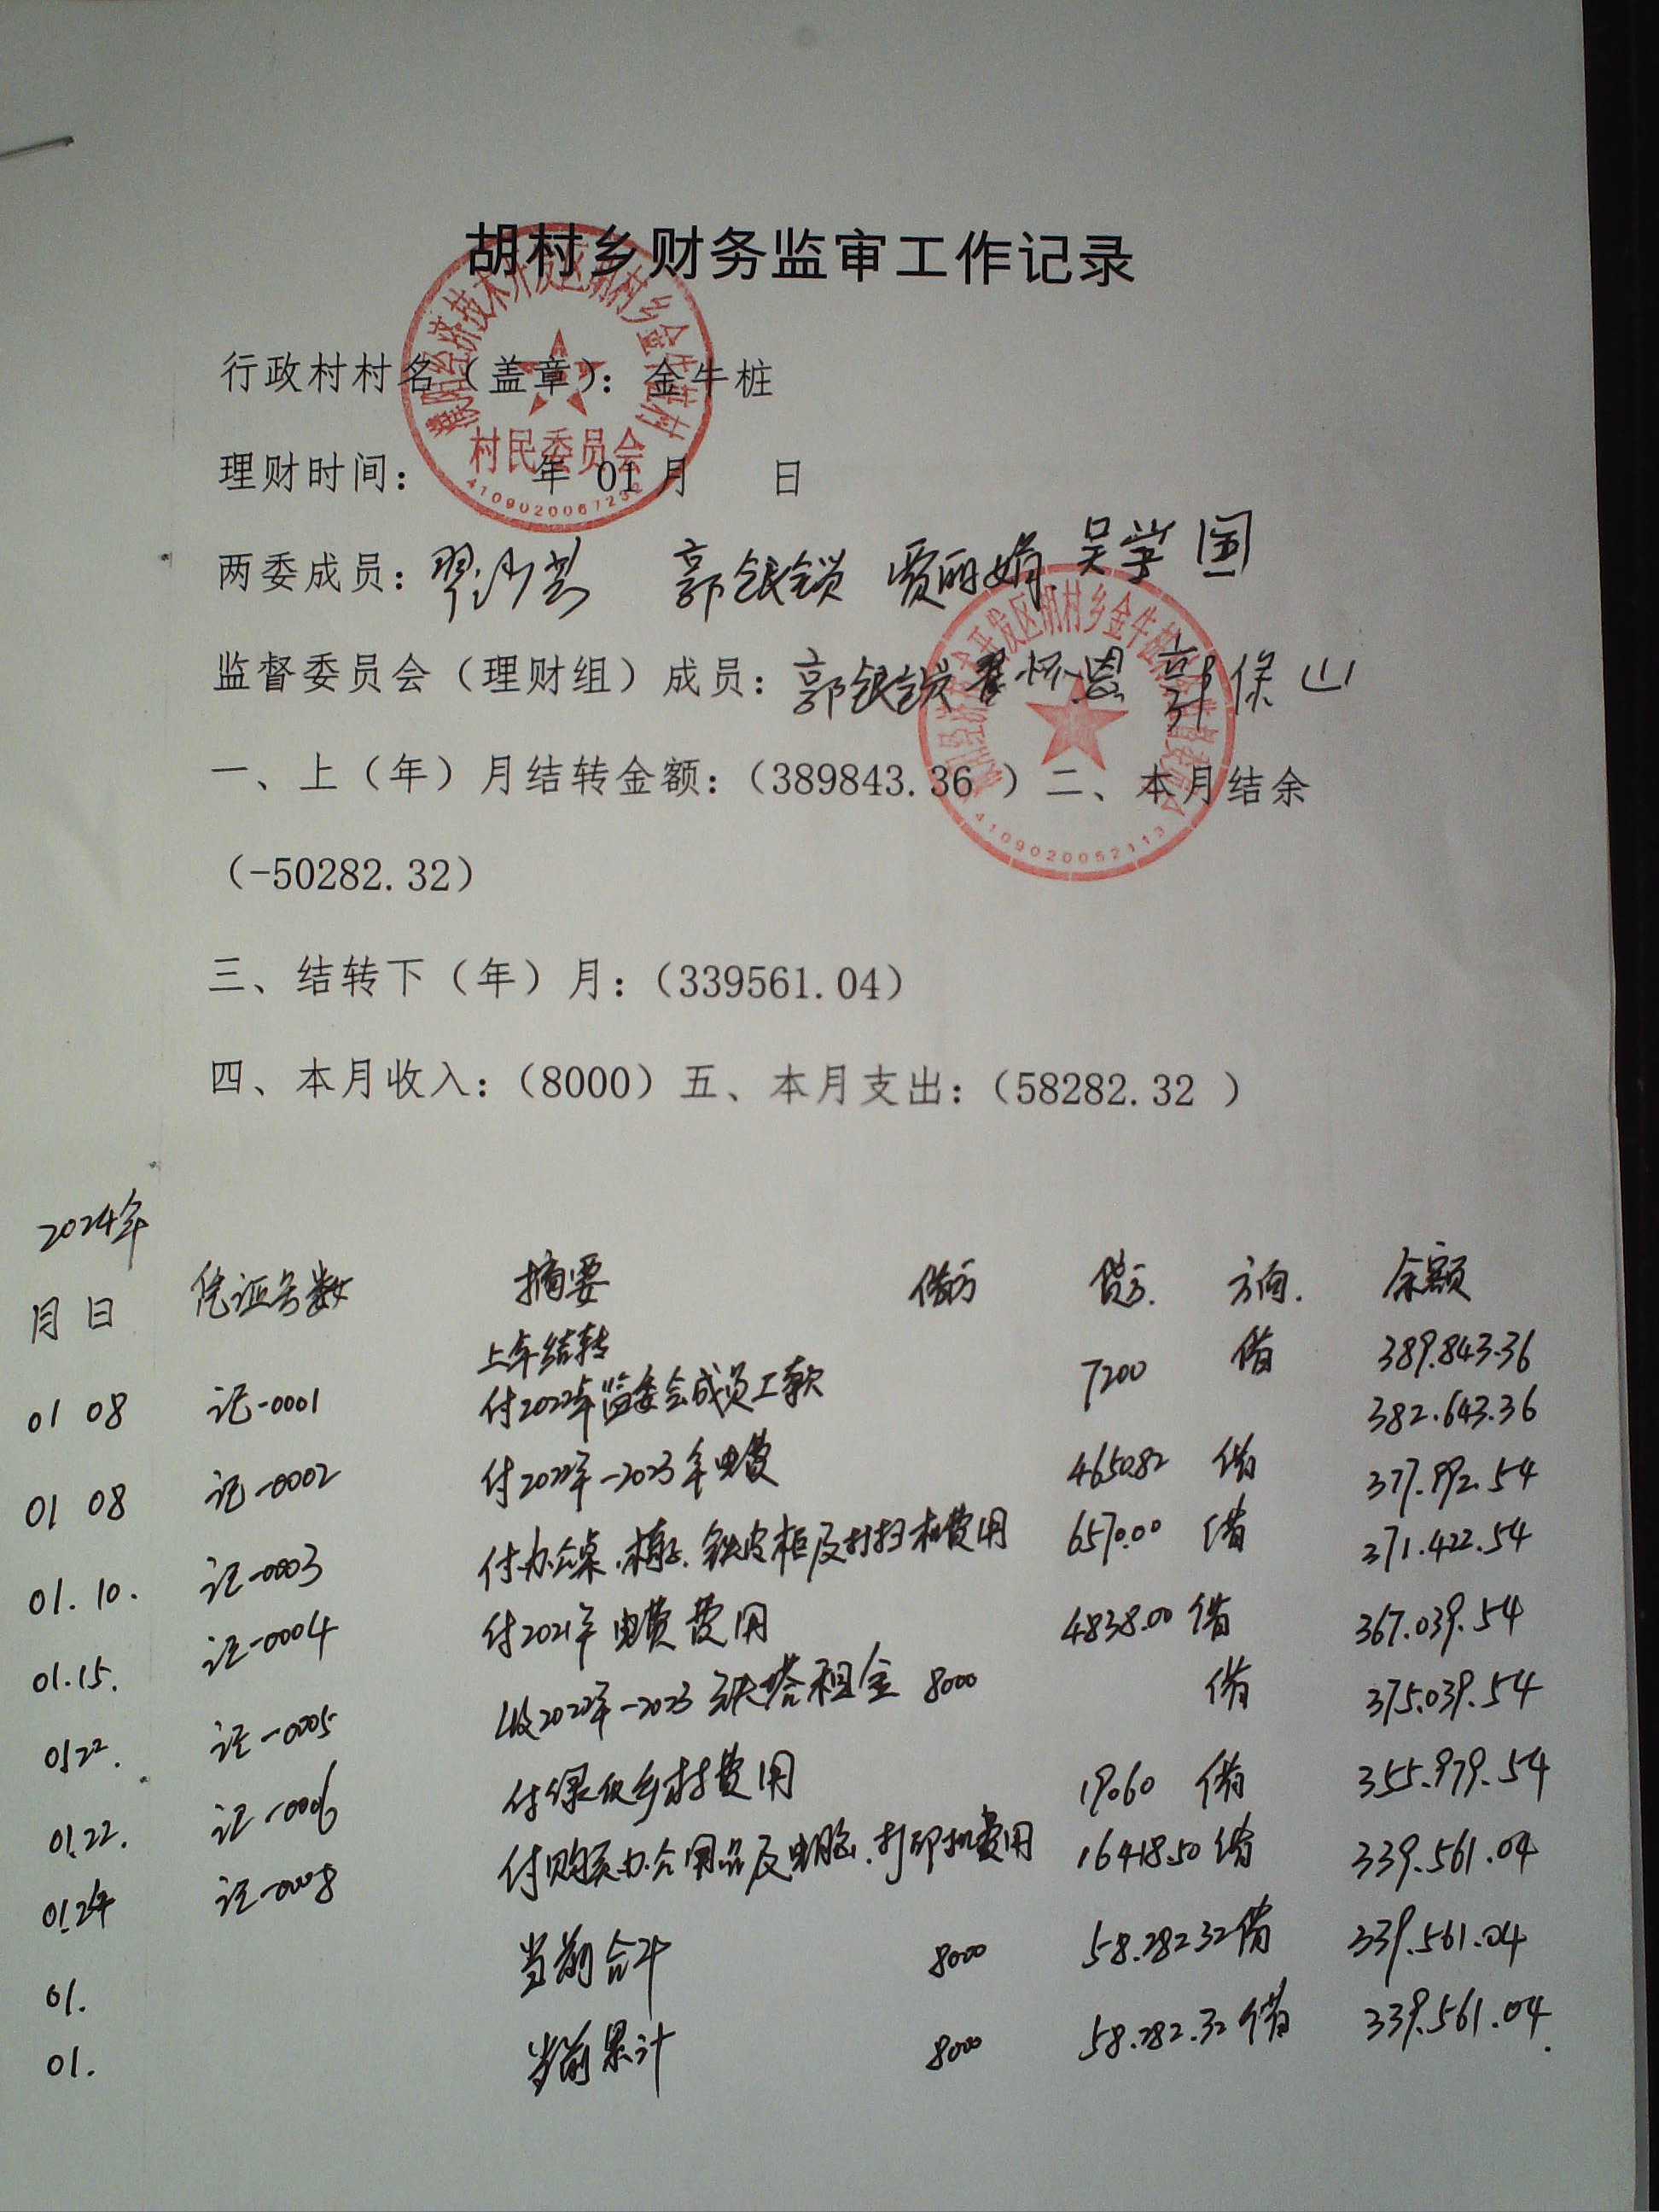 胡村乡财务监审工作记录
行政村村名（盖章）：金牛桩
村民委员会
4109020067232
理财时间： 年 01 月 日
两委成员： 郭银锁 贾丽娟 吴学国
监督委员会（理财组）成员：郭银锁 翟怀恩 郭保山
一、上（年）月结转金额：（389843.36 ）二、本月结余
4109020052113
（-50282.32）
三、结转下（年）月：（339561.04）
四、本月收入：（8000）五、本月支出：（58282.32 ）
2024年
月 日 凭证号数 摘要 借方 贷方. 方向. 余额
上年结转 借 389.843.36
01 08 记-0001 付2022年监委会成员工款 7200 382.643.36
01 08 记-0002 付2022年-2023年电费 4650.82 借 377.992.54
01.10. 记-0003 付办公桌.椅子.铁皮柜及打扫机费用 6570.00 借 371.422.54
01.15. 记-0004 付2021年电费费用 4838.00 借 367.039.54
01.22. 记-0005 收2022年-2023铁塔租金 8000 借 375.039.54
01.22. 记-0006 付绿化乡村费用 19060 借 355.979.54
01.24 记-0008 付购买办公用品及电脑.打印机费用 16418.50 借 339.561.04
01. 当前合计 8000 58.282.32 借 339.561.04
01. 当前累计 8000 58.282.32 借 339.561.04.